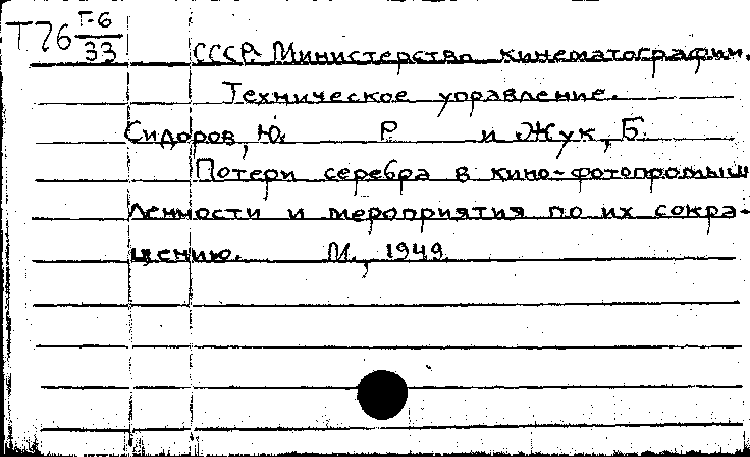 Т.76 Г-6/33
СССР. Министерство кинематографии.
Техническое управление.
Сидоров, Ю. Р и Жук, Б.
Потери серебра в кино-фотопромыш
ленности и мероприятия по их сокра-
щению. М., 1949